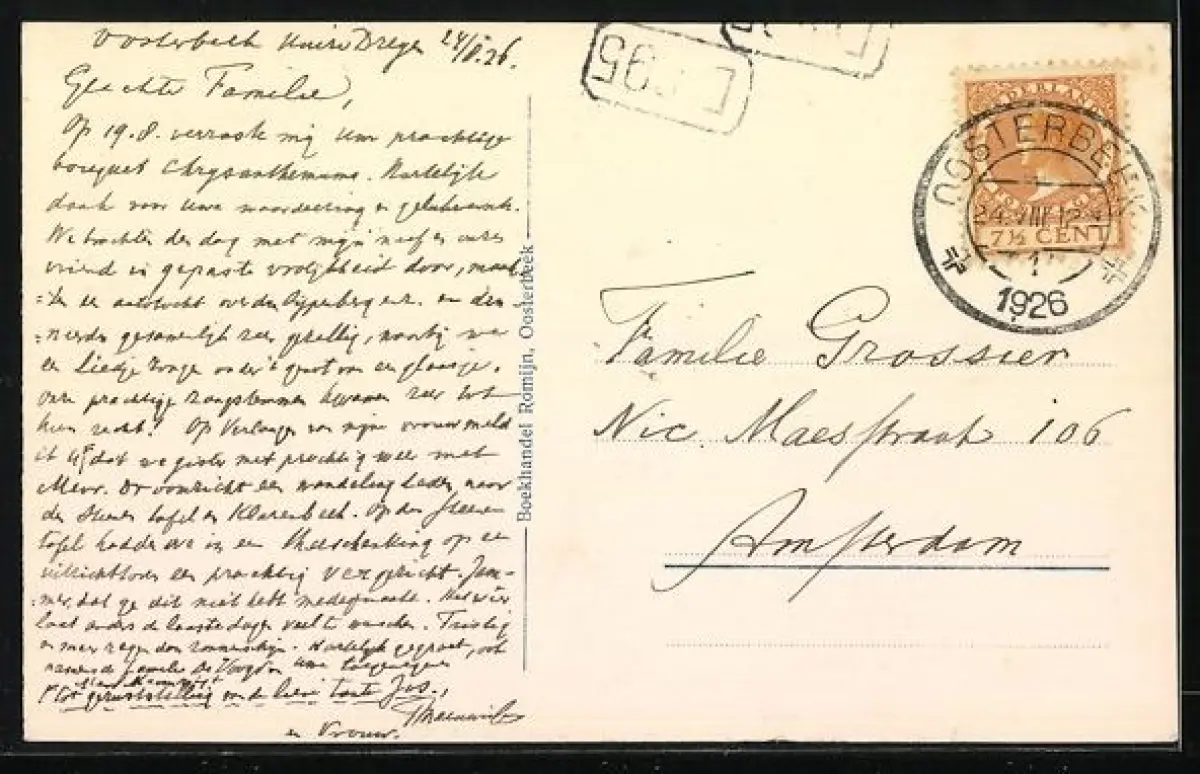 Oosterbeek Huize Dreyen 24/8.26.
Geachte Familie,
Op 19.8. verraste mij Uw prachtige
bouquet Chrysanthemums. Hartelijk
dank voor Uwe waardeering en gelukwensch.
We brachten den dag met mijn neef en onze
vriend in gepaste vroolijkheid door, maak-
=ten een autotocht over den Rijperberg enz. en di-
=neerden gezamenlijk zeer gezellig, waarbij we
een Liedje zongen onder 't genot van een glaasje.
onze prachtige zangstemmen kwamen zeer tot
hun recht! Op Verlangen van mijne vrouw meld
ik U, dat we gister met prachtig weer met
Mevr. een wandeling deden naar
den Steenen tafel en Klarenbeek. Op den Steenen
tafel hadden we in een Theeschenking op een
uitzichttoren een prachtig vergezicht. Jam-
=mer, dat ge dit niet hebt medegemaakt. Het weer
laat anders de laatste dagen veel te wenschen. Triestig
en meer regen dan zonneschijn. Hartelijk gegroet, ook
namens de familie De Voogd en Uwe toegenegen
Tot geruststelling van de lieve tante Jos.,
en Vrouw.
Boekhandel Romijn, Oosterbeek
NEDERLAND
7½ CENT
OOSTERBEEK
24.VIII.12
1
1926
Familie Grossier
Nic. Maesstraat 106
Amsterdam